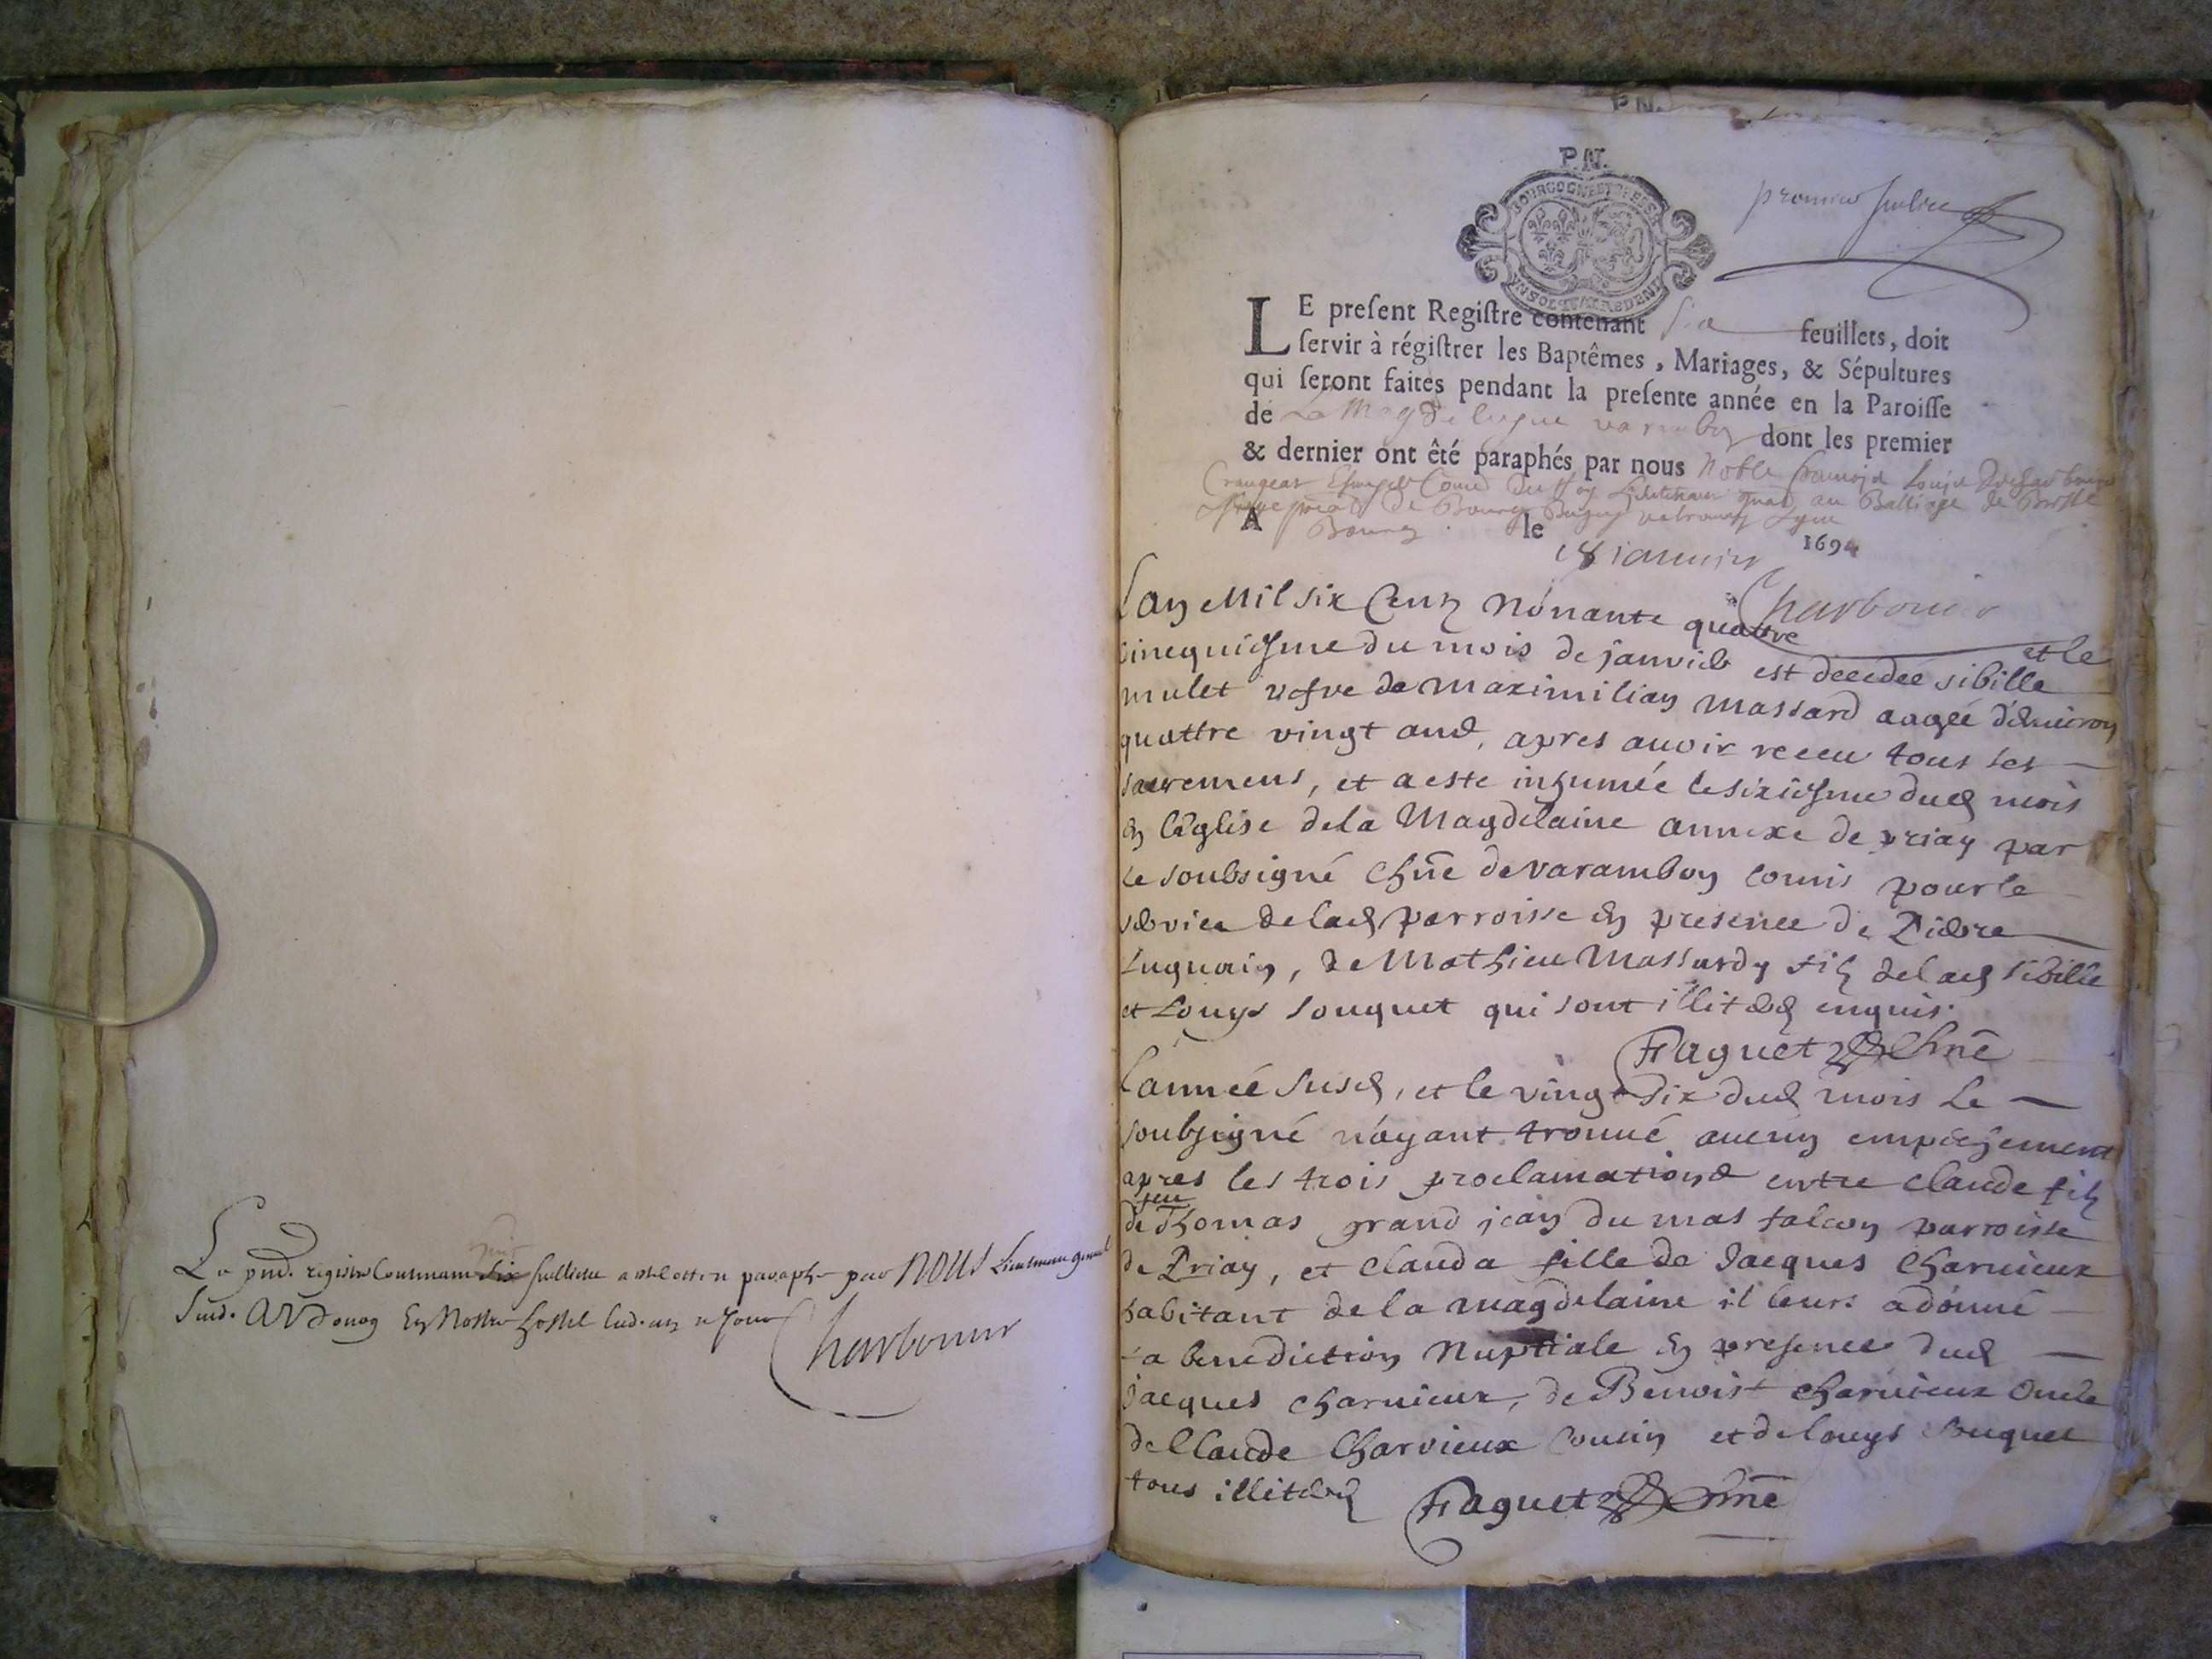 Le pnt. registre Contenant six feuillets a esté cotté et paraphé par NOUS Lieutenant general
Susd.
En Nostre hostel lesd. an et Jour
Charbonnier
PN.
P.N.
BOURGOGNE ET BRESSE
premier feuillet
LE present Registre contenant six feuillets, doit
servir à régistrer les Baptêmes, Mariages, & Sépultures
qui seront faites pendant la presente année en la Paroisse
de La Magdeleyne varambon dont les premier
& dernier ont êté paraphés par nous Noble francois Louis
Lieutenant gnal au Balliage de Bresse
de Bourg Bugey valromey
A Bourg le 18 ianuier 1694
Charbonnier
Lan Mil six Cent Nonante quattre et le
cinequiesme du mois de januier est decedée sibille
mulet vefve de maximilian massard aagée d'enuiron
quattre vingt ans, apres auoir receu tous les
sacremens, et a este inhumée le sixiesme dud mois
en l'Eglise de la Magdelaine annexe de priay par
le soubsigné Chne de varambon comis pour le
service de lad parroisse en presence de Pierre
Luguain, de Mathieu Massardy fils de lad sibille
et Louys souquet qui sont illiterés enquis.
Faguet Chne
L'année susd, et le vingt six dud mois Le
soubsigné n'ayant trouué aucun empechement
apres les trois proclamations entre Claude fils
de feu Thomas grand jean du mas falcon parroisse
de Priay, et Clauda fille de Jacques Charuieux
habitant de la magdelaine il leurs a donné
la benediction Nuptiale en presence dud
Jacques Charuieux, de Benoist Charuieux Oncle
de Claude Charvieux Cousin et de Louys souquet
tous illiterés Faguet Chne